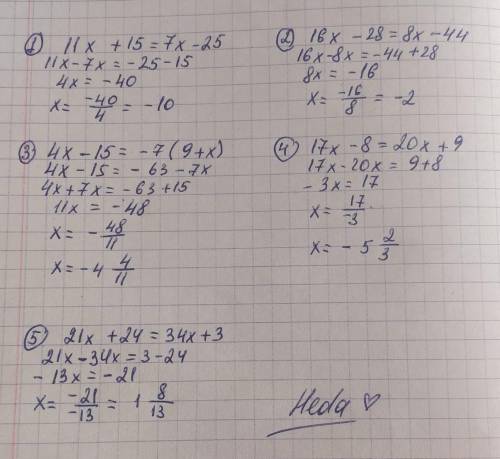 ① 11x + 15 = 7x - 25
11x - 7x = -25 - 15
4x = -40
x = -40/4 = -10
② 16x - 28 = 8x - 44
16x - 8x = -44 + 28
8x = -16
x = -16/8 = -2
③ 4x - 15 = -7(9+x)
4x - 15 = -63 - 7x
4x + 7x = -63 + 15
11x = -48
x = - 48/11
x = -4 4/11
④ 17x - 8 = 20x + 9
17x - 20x = 9 + 8
-3x = 17
x = 17/-3
x = - 5 2/3
⑤ 21x + 24 = 34x + 3
21x - 34x = 3 - 24
-13x = -21
x = -21/-13 = 1 8/13
Heda ♡